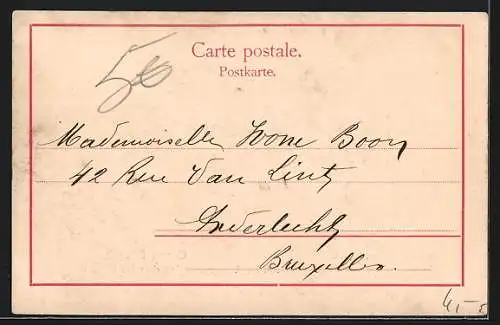 Carte postale.
Postkarte.
50
Mademoiselle Yvonne Boon
42 Rue Van Lint
Anderlecht
Bruxelles.